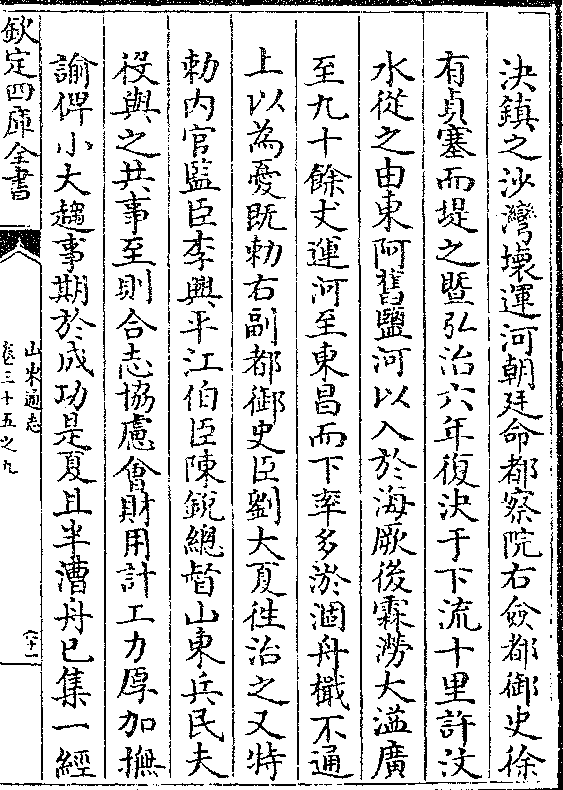 決鎮之沙灣壞運河朝廷命都察院右僉都御史徐
有貞塞而堤之暨弘治六年復決于下流十里許汶
水從之由東阿舊鹽河以入於海厥後霖澇大溢廣
至九十餘丈運河至東昌而下率多淤涸舟檝不通
上以為憂既勅右副都御史臣劉大夏往治之又特
勅内官監臣李興平江伯臣陳銳總督山東兵民夫
役與之共事至則合志協慮會財用計工力厚加撫
諭俾小大趨事期於成功是夏且半漕舟已集一經
欽定四庫全書
山東通志
卷三十五之九